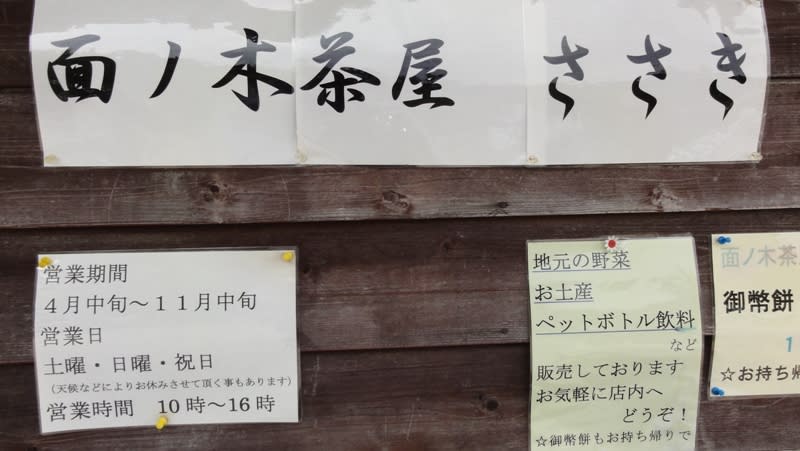 面ノ木茶屋 ささき
営業期間
４月中旬～１１月中旬
営業日
土曜・日曜・祝日
（天候などによりお休みさせて頂く事もあります）
営業時間 10時～16時
地元の野菜
お土産
ペットボトル飲料
など
販売しております
お気軽に店内へ
どうぞ！
☆御幣餅もお持ち帰りで
面ノ木茶
御幣餅
1
☆お持ち帰